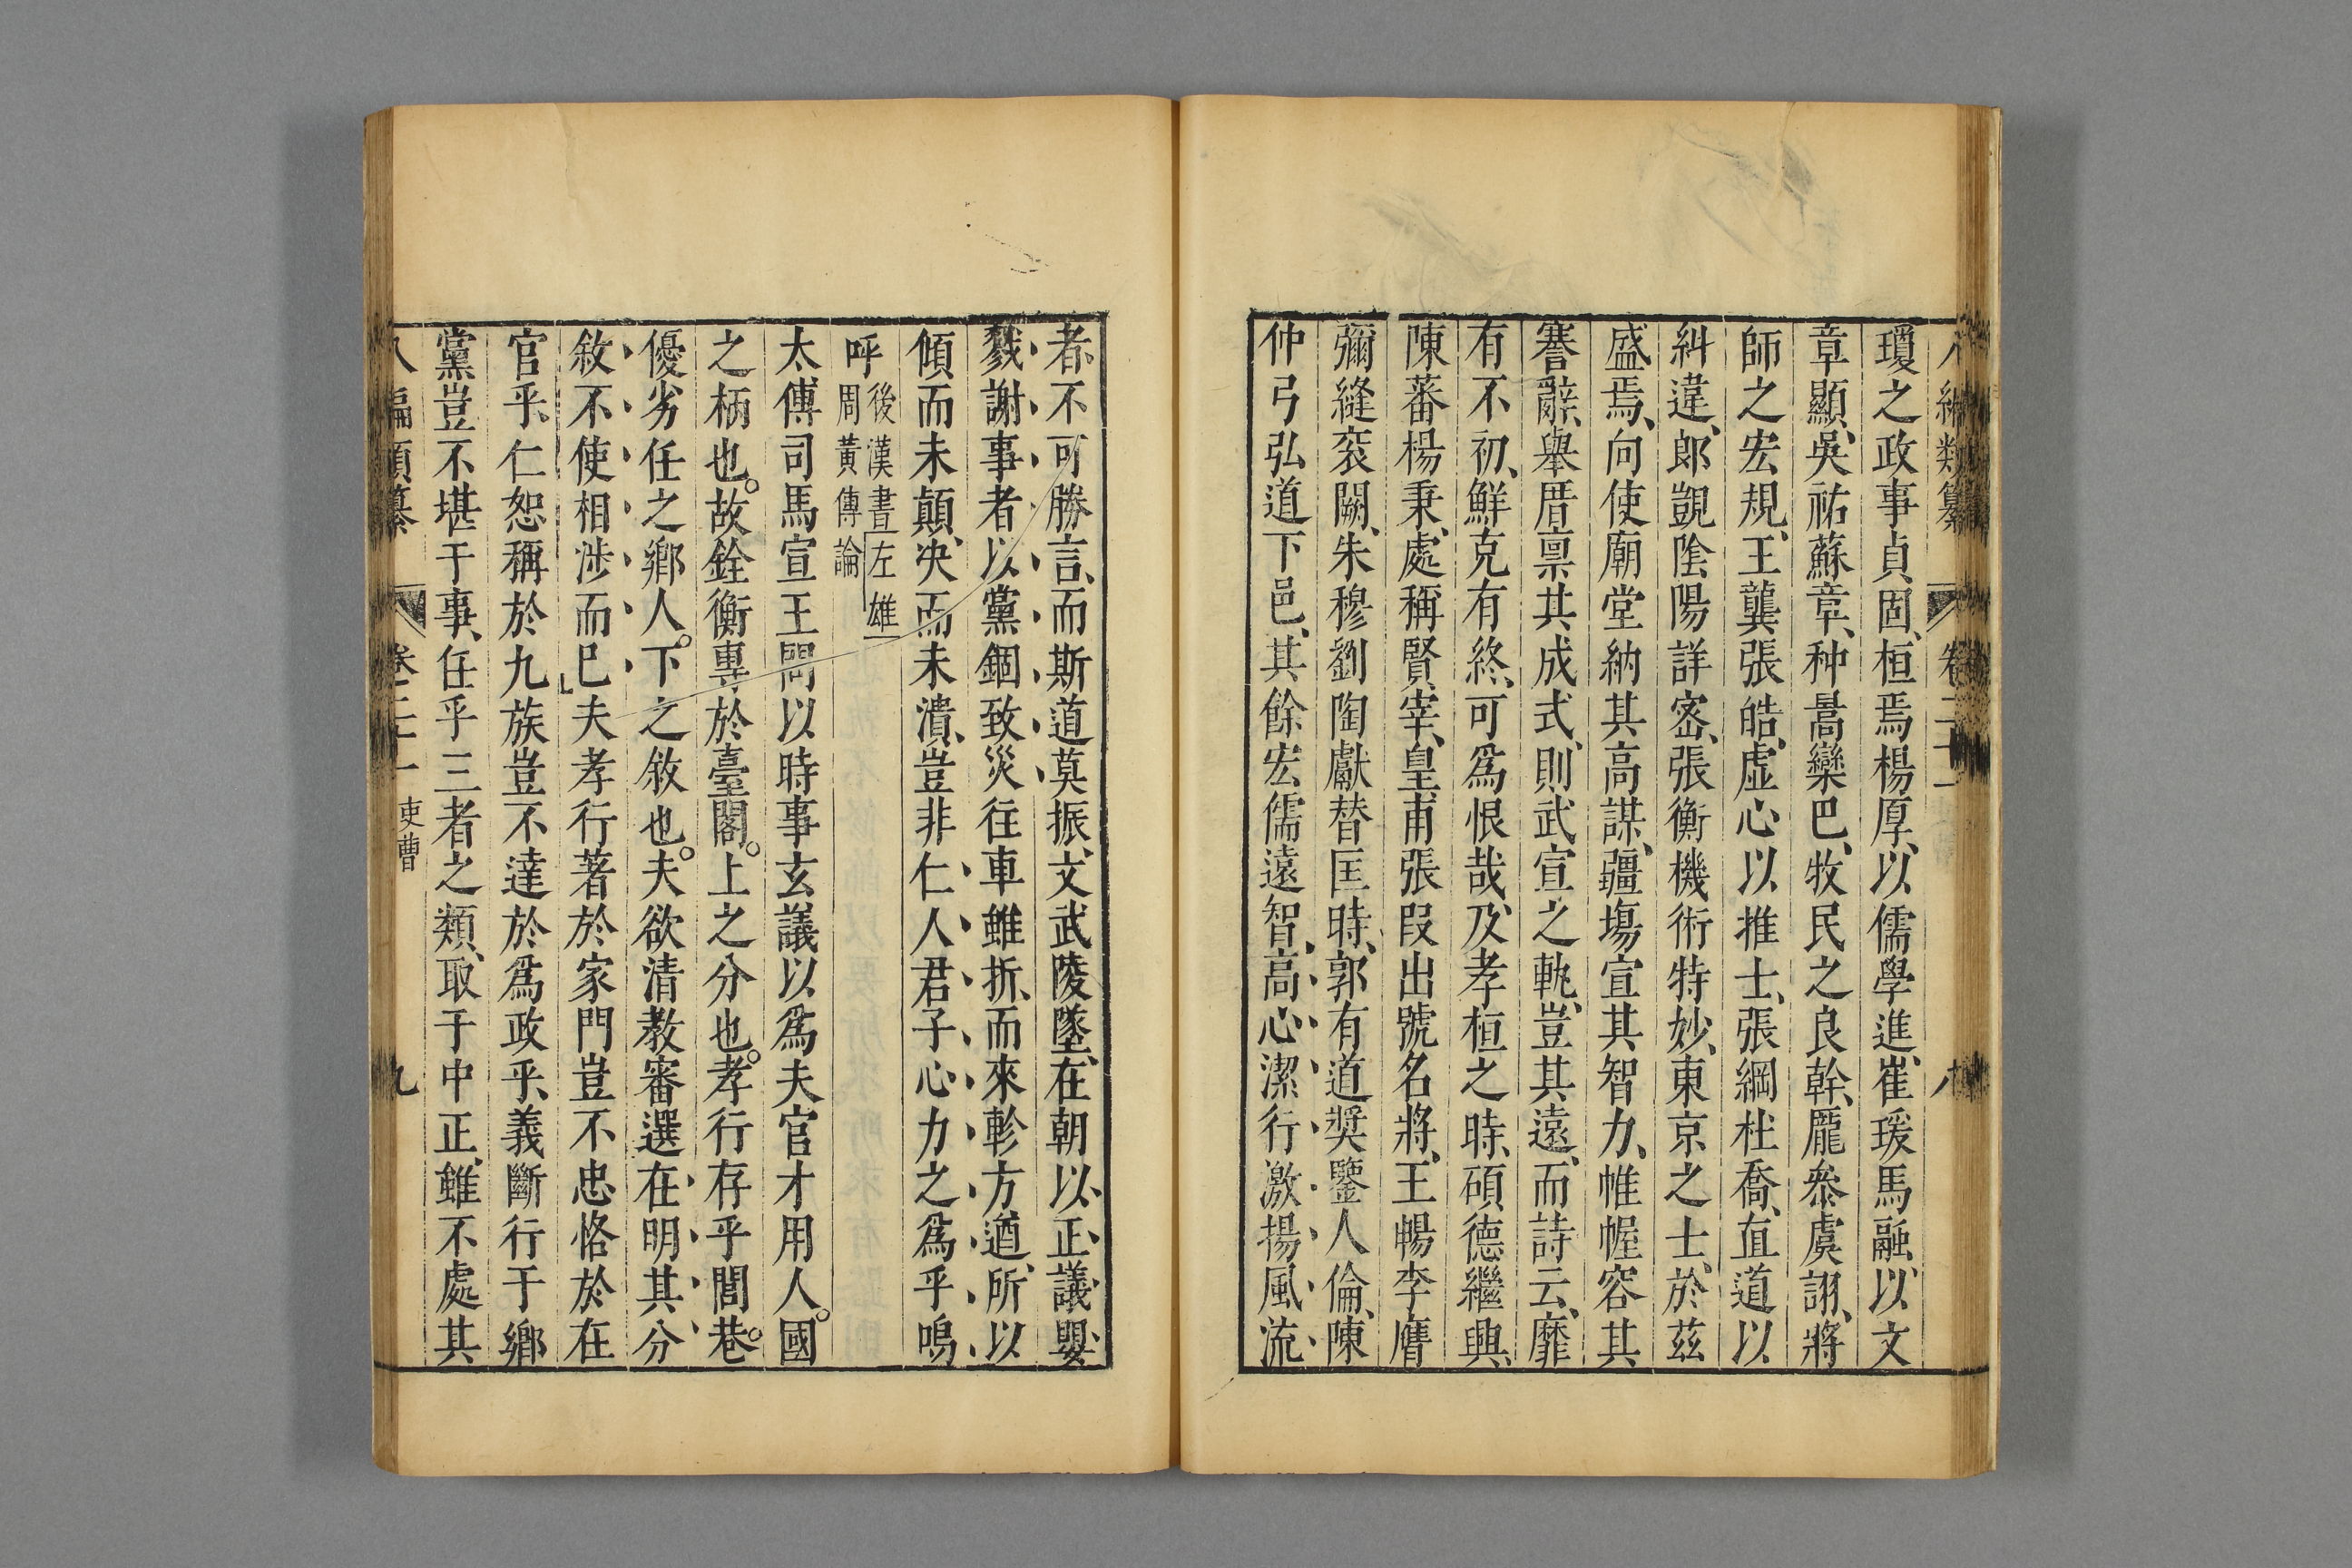 瓊之政事貞固、桓焉楊厚、以儒學進、崔瑗馬融、以文
章顯、吳祐蘇章、种暠欒巴、牧民之良幹、龐參虞詡、將
師之宏規、王龔張皓、虛心以推士、張綱杜喬、直道以
糾違、郎顗陰陽詳密、張衡機術特妙、東京之士、於茲
盛焉、向使廟堂納其高謀、疆埸宣其智力、帷幄容其
謇辭、舉厝稟其成式、則武宣之軌、豈其遠、而詩云、靡
有不初、鮮克有終、可爲恨哉、及孝桓之時、碩德繼興、
陳蕃楊秉、處稱賢宰、皇甫張段出號名將、王暢李膺
彌縫袞闕、朱穆劉陶獻替匡時、郭有道奨鑒人倫、陳
仲弓弘道下邑、其餘宏儒遠智、高心潔行激揚風流
者不可勝言、而斯道莫振、文武陵墜、在朝以正議嬰
戮謝事者以黨錮致災往車雖折、而來軫方遒、所以
傾而未顛、决而未潰、豈非仁人君子心力之爲乎嗚
呼 後漢書左雄
周黃傳論
太傅司馬宣王問以時事玄議以爲夫官才用人。國
之柄也。故銓衡專於臺閣。上之分也。孝行存乎閭巷。
優劣任之鄉人。下之敘也。夫欲清教審選在明其分
敘不使相涉而巳夫孝行著於家門豈不忠恪於在
官乎、仁恕稱於九族豈不達於爲政乎、義斷行于鄉
黨豈不堪于事、任乎三者之類、取于中正、雖不處其
卷二十一 吏曹 九